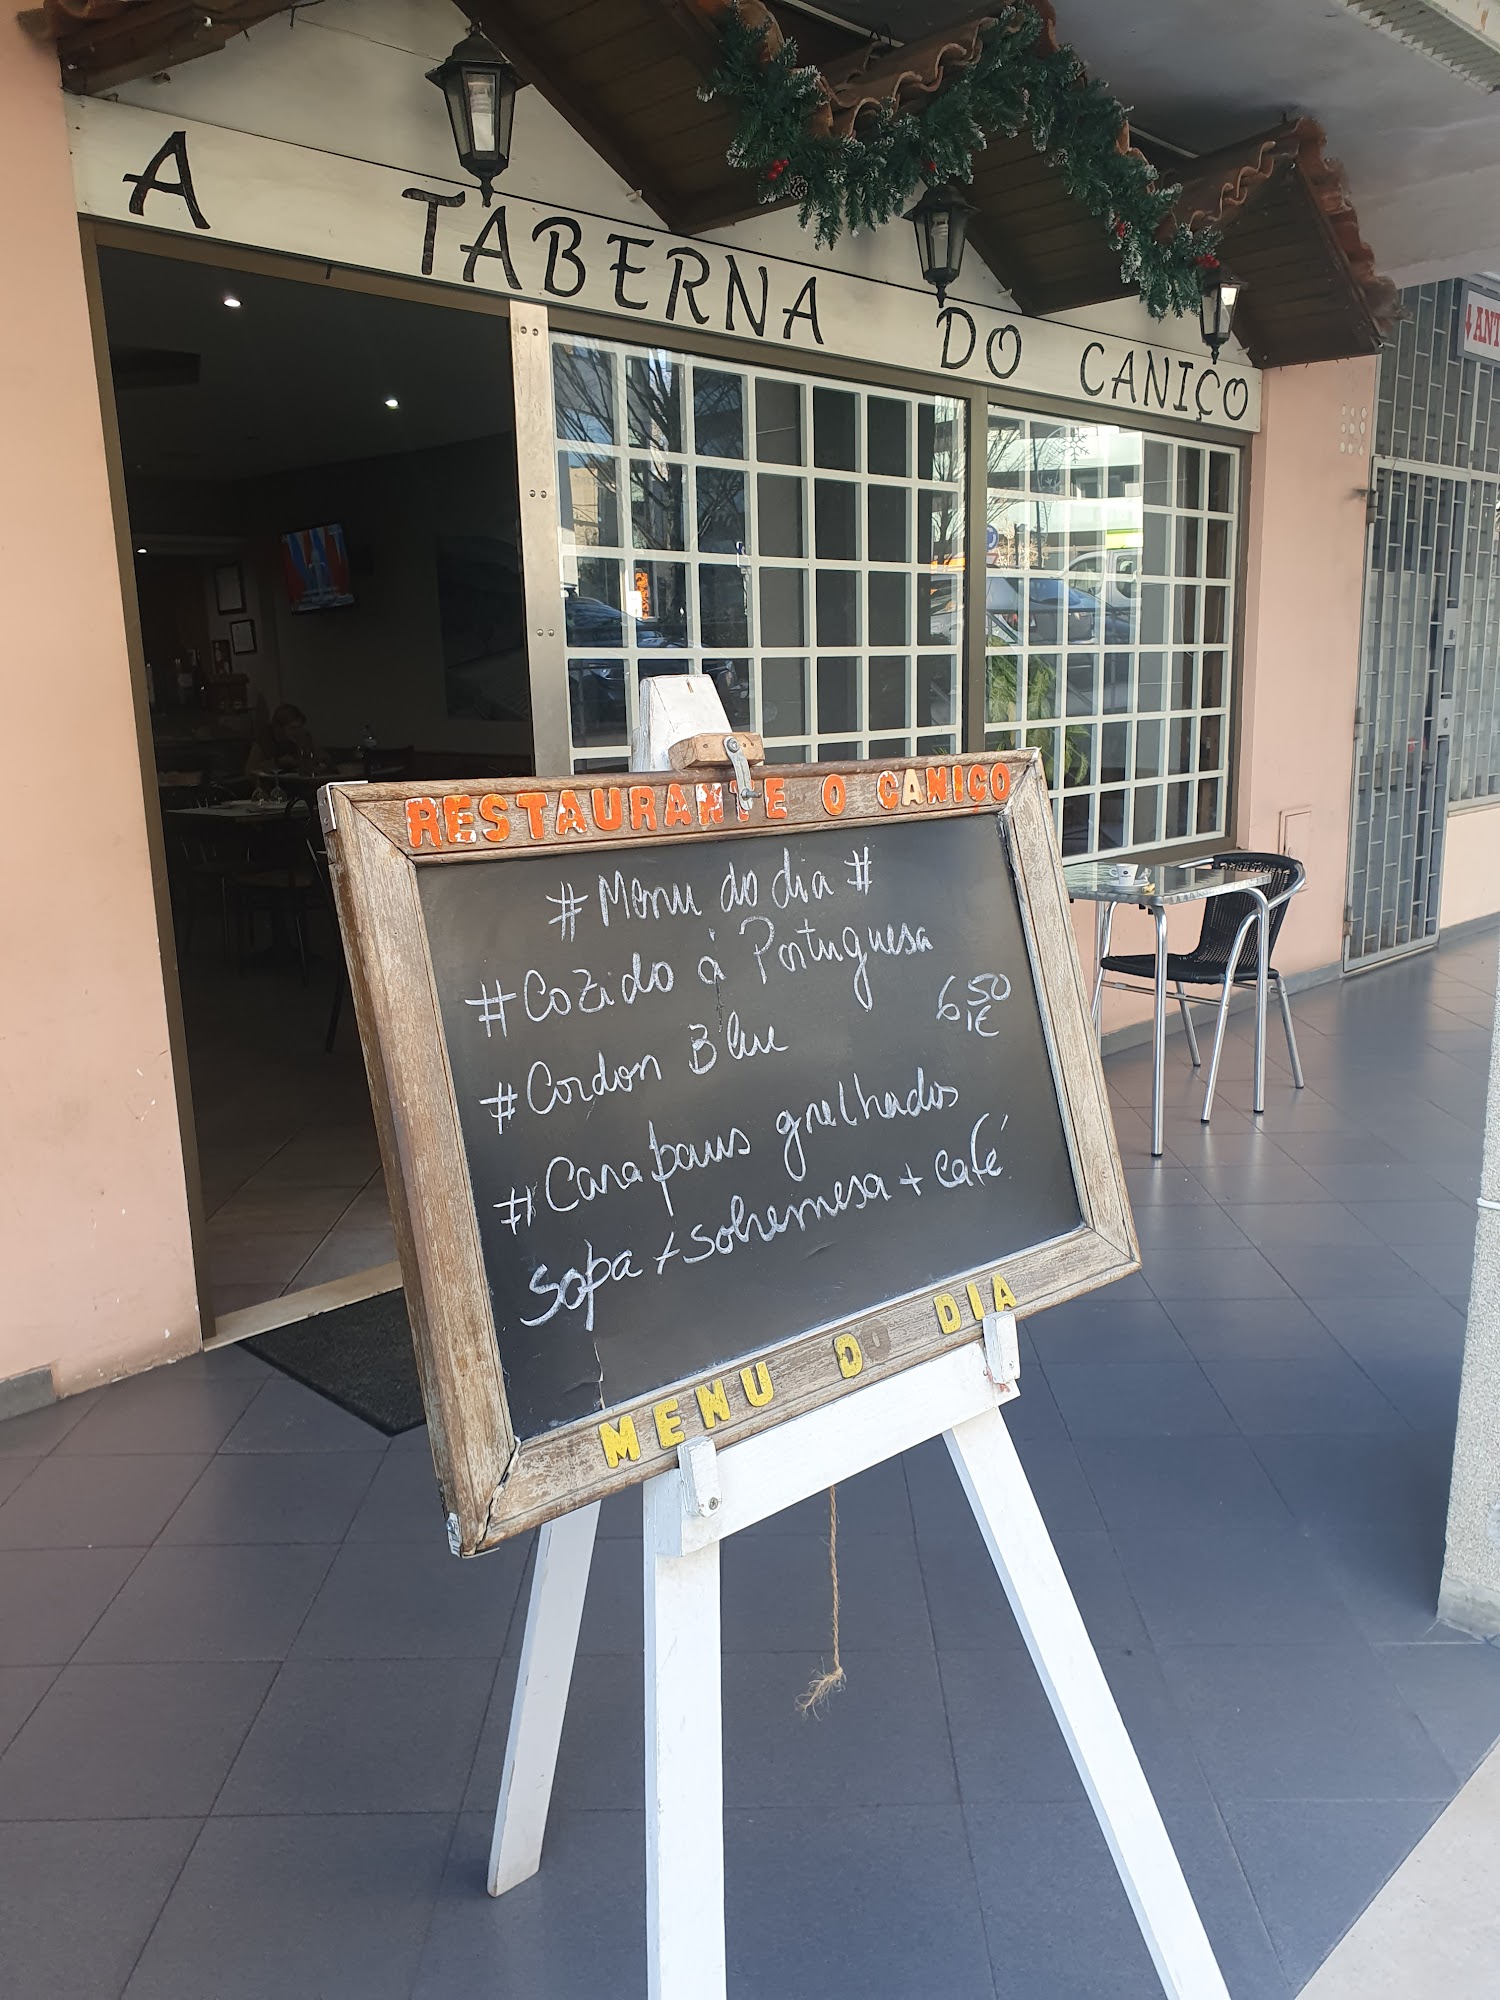 A TABERNA DO CANIÇO
ANT
RESTAURANTE O CANIÇO
# Menu do dia #
# Cozido á Portuguesa
6,50
1€
# Cordon Blue
# Carapaus grelhados
Sopa + sobremesa + café
MENU DO DIA